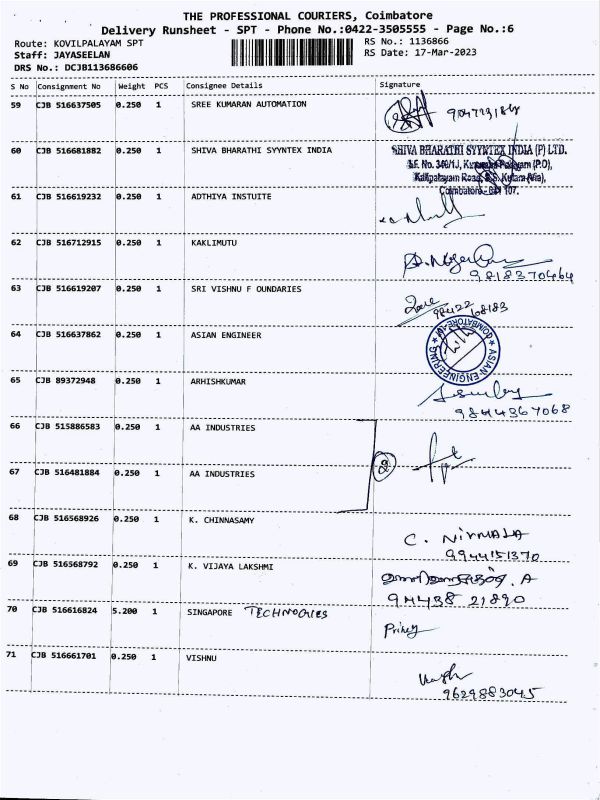 THE PROFESSIONAL COURIERS, Coimbatore
Delivery Runsheet - SPT - Phone No.:0422-3505555 - Page No.:6
Route: KOVILPALAYAM SPT
Staff: JAYASEELAN
DRS No.: DCJB113686606
RS No.: 1136866
RS Date: 17-Mar-2023
S No Consignment No Weight PCS Consignee Details Signature
59 CJB 516637505 0.250 1 SREE KUMARAN AUTOMATION
60 CJB 516681882 0.250 1 SHIVA BHARATHI SYYNTEX INDIA
SHIVA BHARATHI SYYNTEX INDIA (P) LTD.
S.F. No. 346/1J,
Kalipalayam Road,
Coimbatore - 641 107.
61 CJB 516619232 0.250 1 ADTHIYA INSTUITE
62 CJB 516712915 0.250 1 KAKLIMUTU
9818370464
63 CJB 516619207 0.250 1 SRI VISHNU F OUNDARIES
98422
108183
64 CJB 516637862 0.250 1 ASIAN ENGINEER
ASIAN ENGINEERING
COIMBATORE
65 CJB 89372948 0.250 1 ARHISHKUMAR
9844367068
66 CJB 515886583 0.250 1 AA INDUSTRIES
67 CJB 516481884 0.250 1 AA INDUSTRIES
2
68 CJB 516568926 0.250 1 K. CHINNASAMY
C. NIRMALA
9944151370
69 CJB 516568792 0.250 1 K. VIJAYA LAKSHMI
A
94438 21890
70 CJB 516616824 5.200 1 SINGAPORE TECHNOOGIES
71 CJB 516661701 0.250 1 VISHNU
9629883045